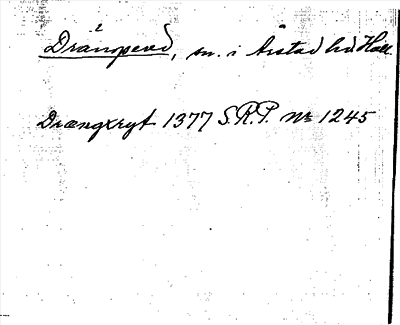 Drängsered, sn. i Årstad hd Hall.
Drængxryt 1377 S.R.P. nr 1245